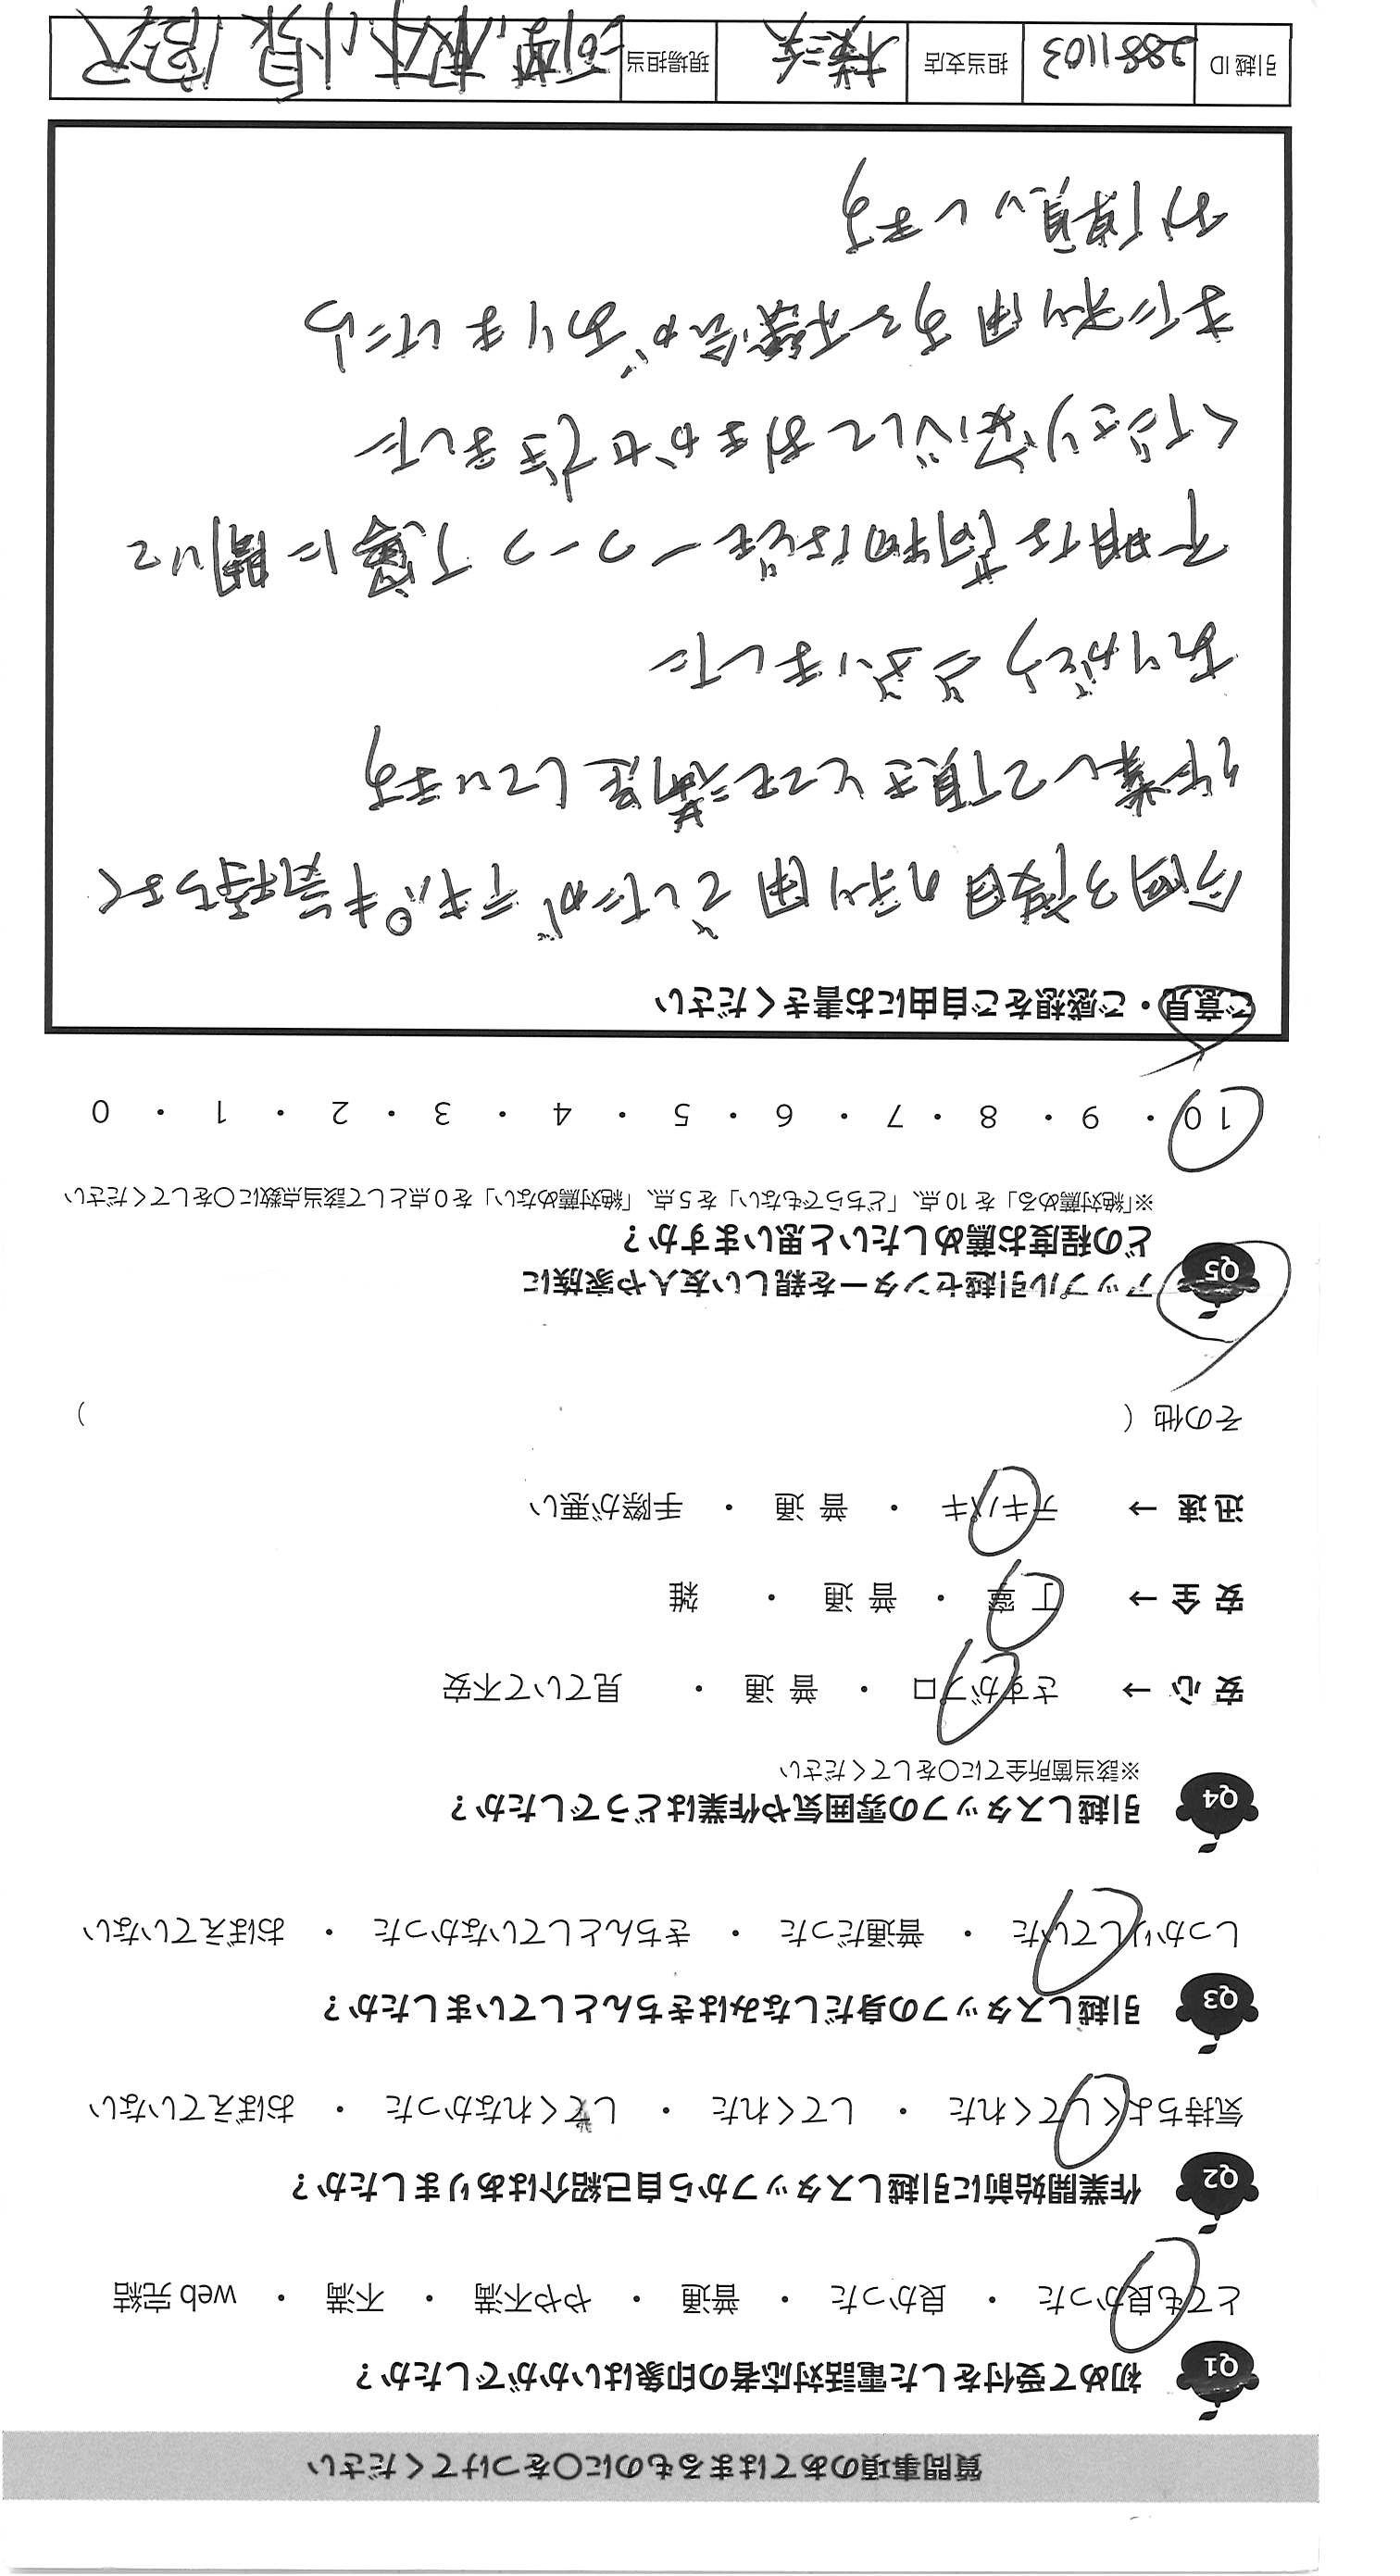 質問事項のあてはまるものに○をつけてください
Q1 初めて受付をした電話対応者の印象はいかがでしたか？
とても良かった ・ 良かった ・ 普通 ・ やや不満 ・ 不満 ・ web 完結
Q2 作業開始前に引越しスタッフから自己紹介はありましたか？
気持ちよくしてくれた ・ してくれた ・ してくれなかった ・ おぼえていない
Q3 引越しスタッフの身だしなみはきちんとしていましたか？
しっかりしていた ・ 普通だった ・ きちんとしていなかった ・ おぼえていない
Q4 引越しスタッフの雰囲気や作業はどうでしたか？
※該当箇所全てに○をしてください
安 心 → さすがプロ ・ 普 通 ・ 見ていて不安
安 全 → 丁 寧 ・ 普 通 ・ 雑
迅 速 → テキパキ ・ 普 通 ・ 手際が悪い
その他 （ ）
Q5 アップル引越センターを親しい友人や家族に
どの程度お薦めしたいと思いますか？
※「絶対薦める」を 10 点、「どちらでもない」を 5 点、「絶対薦めない」を 0 点として該当点数に○をしてください
10 ・ 9 ・ 8 ・ 7 ・ 6 ・ 5 ・ 4 ・ 3 ・ 2 ・ 1 ・ 0
ご意見・ご感想をご自由にお書きください
今回3度目の利用でしたがテキパキ気持ちよく
作業して頂きとても満足しています
ありがとうございました
不明な荷物なども一つ一つ丁寧に聞いて
くださり安心しておまかせできました
また利用する機会がありましたら
お願いします
引越 ID 2881103 担当支店 横浜 現場担当 小泉